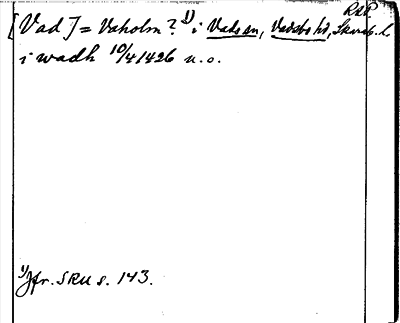 RAP.
[Vad] = Vaholm? 1) i Vads sn, Vadsbo hd, Skarab. l.
i wadh 10/4 1426 u.o.
1) Jfr. SRU s. 143.